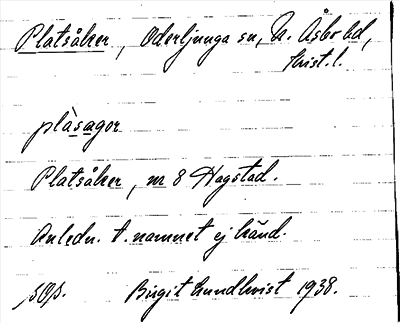 Platsåker, Oderljunga sn, N. Åsbo hd,
Krist. l.
plåsagor
Platsåker, nr 8 Hagstad.
Anledn. t. namnet ej känd.
Birgit Lundkvist 1938.